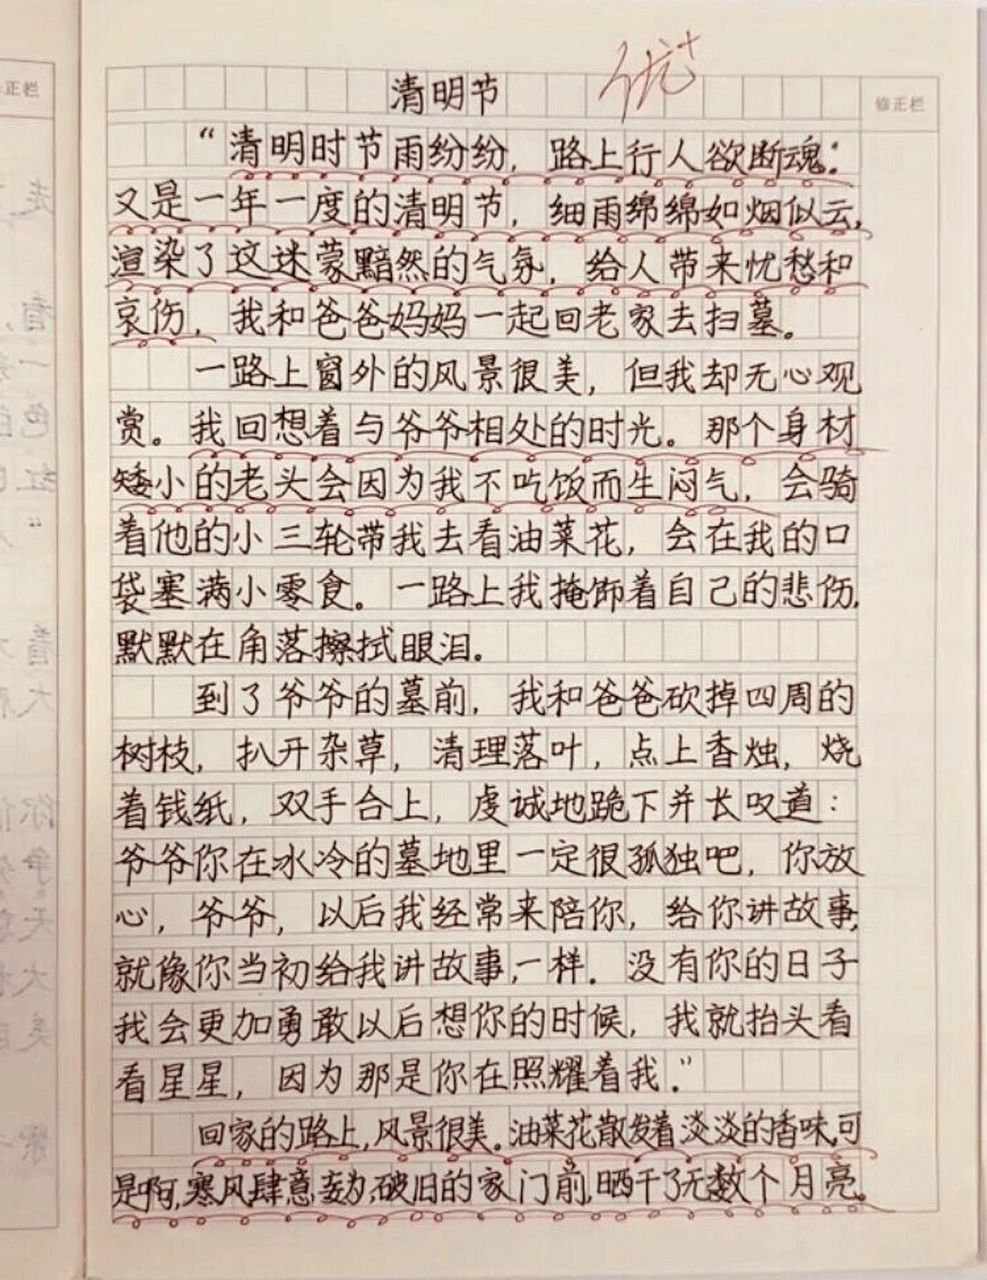 修正栏
优+
清明节
“清明时节雨纷纷，路上行人欲断魂.”
又是一年一度的清明节，细雨绵绵如烟似云，
渲染了这迷蒙黯然的气氛，给人带来忧愁和
哀伤，我和爸爸妈妈一起回老家去扫墓。
一路上窗外的风景很美，但我却无心观
赏。我回想着与爷爷相处的时光。那个身材
矮小的老头会因为我不吃饭而生闷气，会骑
着他的小三轮带我去看油菜花，会在我的口
袋塞满小零食。一路上我掩饰着自己的悲伤，
默默在角落擦拭眼泪。
到了爷爷的墓前，我和爸爸砍掉四周的
树枝，扒开杂草，清理落叶，点上香烛，烧
着钱纸，双手合上，虔诚地跪下并长叹道：
爷爷你在冰冷的墓地里一定很孤独吧，你放
心，爷爷，以后我经常来陪你，给你讲故事，
就像你当初给我讲故事，一样．没有你的日子
我会更加勇敢以后想你的时候，我就抬头看
看星星，因为那是你在照耀着我.”
回家的路上，风景很美．油菜花散发着淡淡的香味，可
是啊，寒风肆意妄为，破旧的家门前，晒干了无数个月亮。